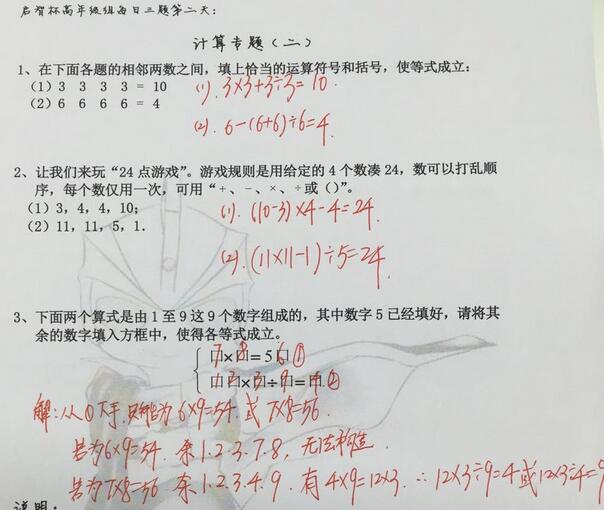 启智杯高年级组每日三题第二天：
计算专题（二）
1、在下面各题的相邻两数之间，填上恰当的运算符号和括号，使等式成立：
（1）3 3 3 3 = 10 (1). 3×3+3÷3=10.
（2）6 6 6 6 = 4 (2). 6-(6+6)÷6=4.
2、让我们来玩“24 点游戏”。游戏规则是用给定的 4 个数凑 24，数可以打乱顺
序，每个数仅用一次，可用“+、-、×、÷或（）”。
（1）3，4，4，10； (1). (10-3)×4-4=24.
（2）11，11，5，1． (2). (11×11-1)÷5=24.
3、下面两个算式是由 1 至 9 这 9 个数字组成的，其中数字 5 已经填好，请将其
余的数字填入方框中，使得各等式成立。
7×8=56 ①
12×3÷9=4 ②
解：从①下手，只能为 6×9=54. 或 7×8=56.
若为6×9=54. 余1.2.3.7.8，无法构造.
若为7×8=56 余1.2.3.4.9. 有 4×9=12×3. ∴12×3÷9=4或12×3÷4=9
说明：